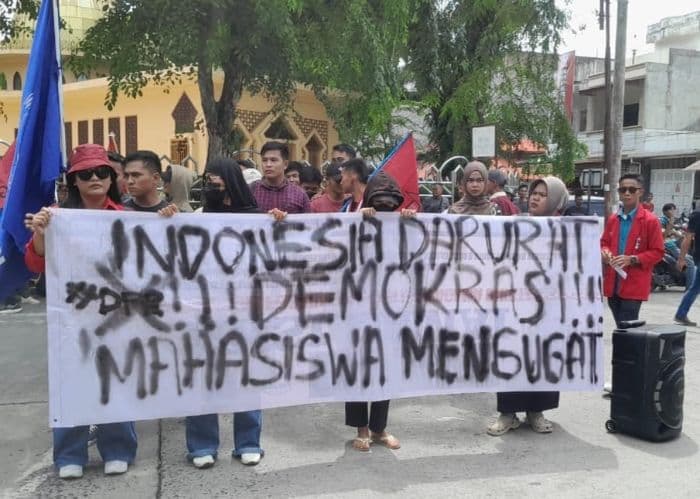 INDONESIA DARURAT
#DPR!!!DEMOKRASI!!!
MAHASISWA MENGUGAT